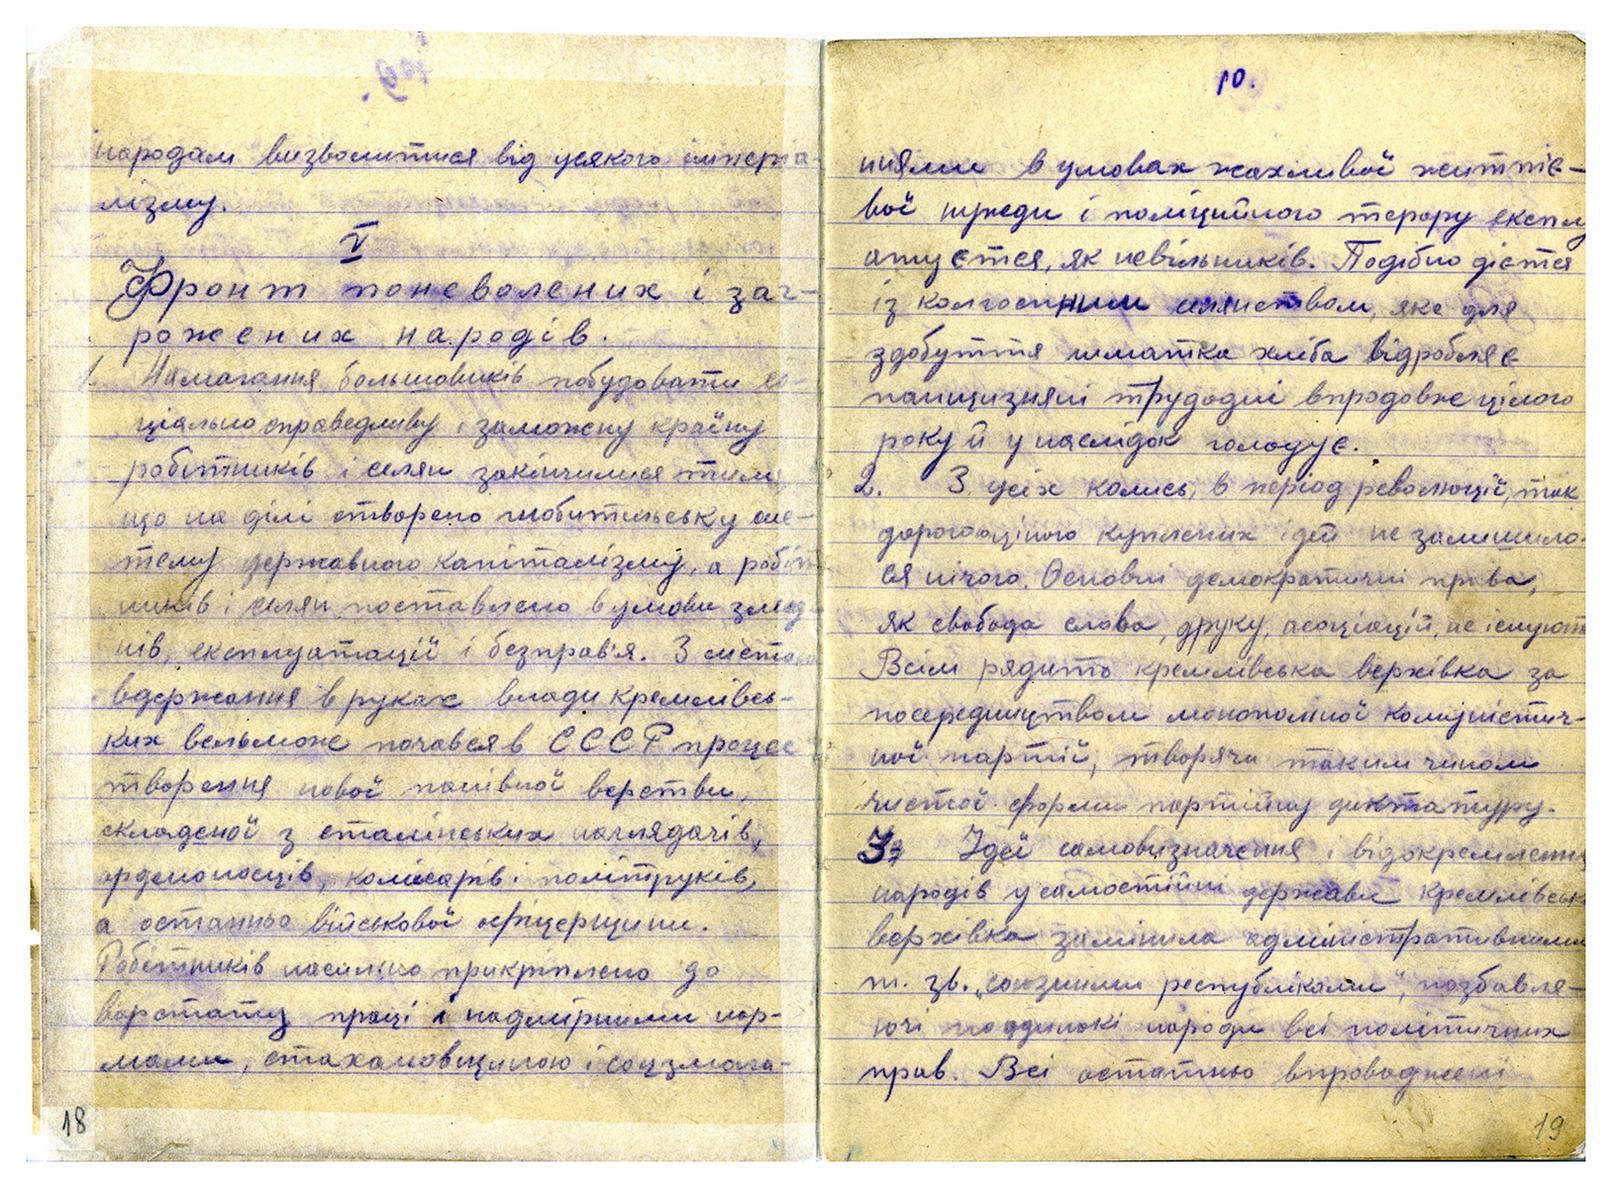 народам визволитися від усякого імперіа-
лізму.
V
Фронт поневолених і заг-
рожених народів.
1. Намагання большовиків побудовати со-
ціально справедливу і заможну країну
робітників і селян закінчилися тим,
що на ділі створено гнобительську сис-
тему державного капіталізму, а робіт
ників і селян поставлено в умови злид
нів, експлуатації і безправ'я. З метою
вдержання в руках влади кремлівсь-
ких вельмож почався в СССР процес
творення нової панівної верстви,
складеної з сталінських наглядачів,
орденоносців, комісарів і політруків,
а останньо військової офіцерщини.
Робітників насильно прикріплено до
верстату праці і надмірними нор-
мами, стахановщиною і соцзмага-
18
10.
ннями в умовах жахливої життіє-
вої нужди і поліційного терору експлу
атується, як невільників. Подібно дієтся
із колгоспним селянством, яке для
здобуття шматка хліба відробляє
панщизняні трудодні впродовж цілого
року й у наслідок голодує.
2. З усіх колись, в період революції, так
дорогоцінно куплених ідей не залишило-
ся нічого. Основні демократичні права,
як свобода слова, друку, асоціацій, не існують
Всім рядить кремлівська верхівка за
посередництвом монопольної комуністич-
ної партії, творячи таким чином
чистої форми партійну диктатуру.
3. Ідеї самовизначення і відокремлення
народів у самостійні держави кремлівськ
верхівка замінила адміністративними
т. зв. „союзними республіками", позбавля-
ючі поодинокі народи всі політичних
прав. Всі останньо впроваджені
19